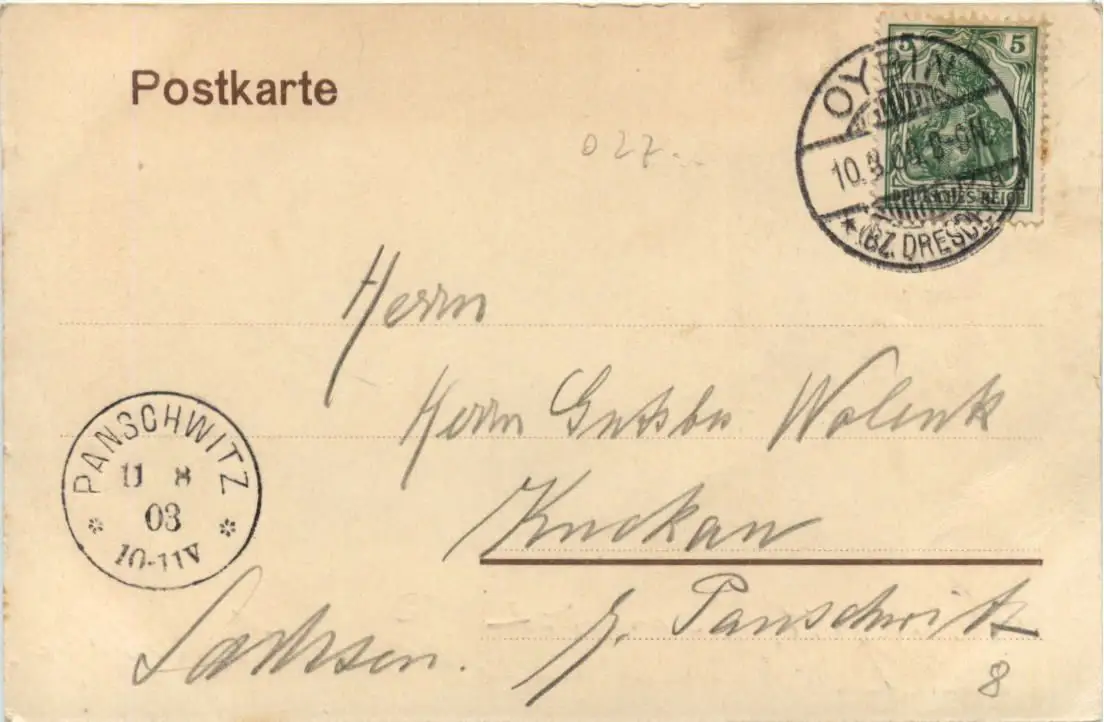 Postkarte
5 5
OYBIN
10.8.03. 8-9N.
DEUTSCHES REICH
* (BZ. DRESD.)
027
Herrn
Herrn Gutsbes Wolenk
Kuckau
PANSCHWITZ
11 8
03
10-11V
b. Panschwitz
Sachsen.
8